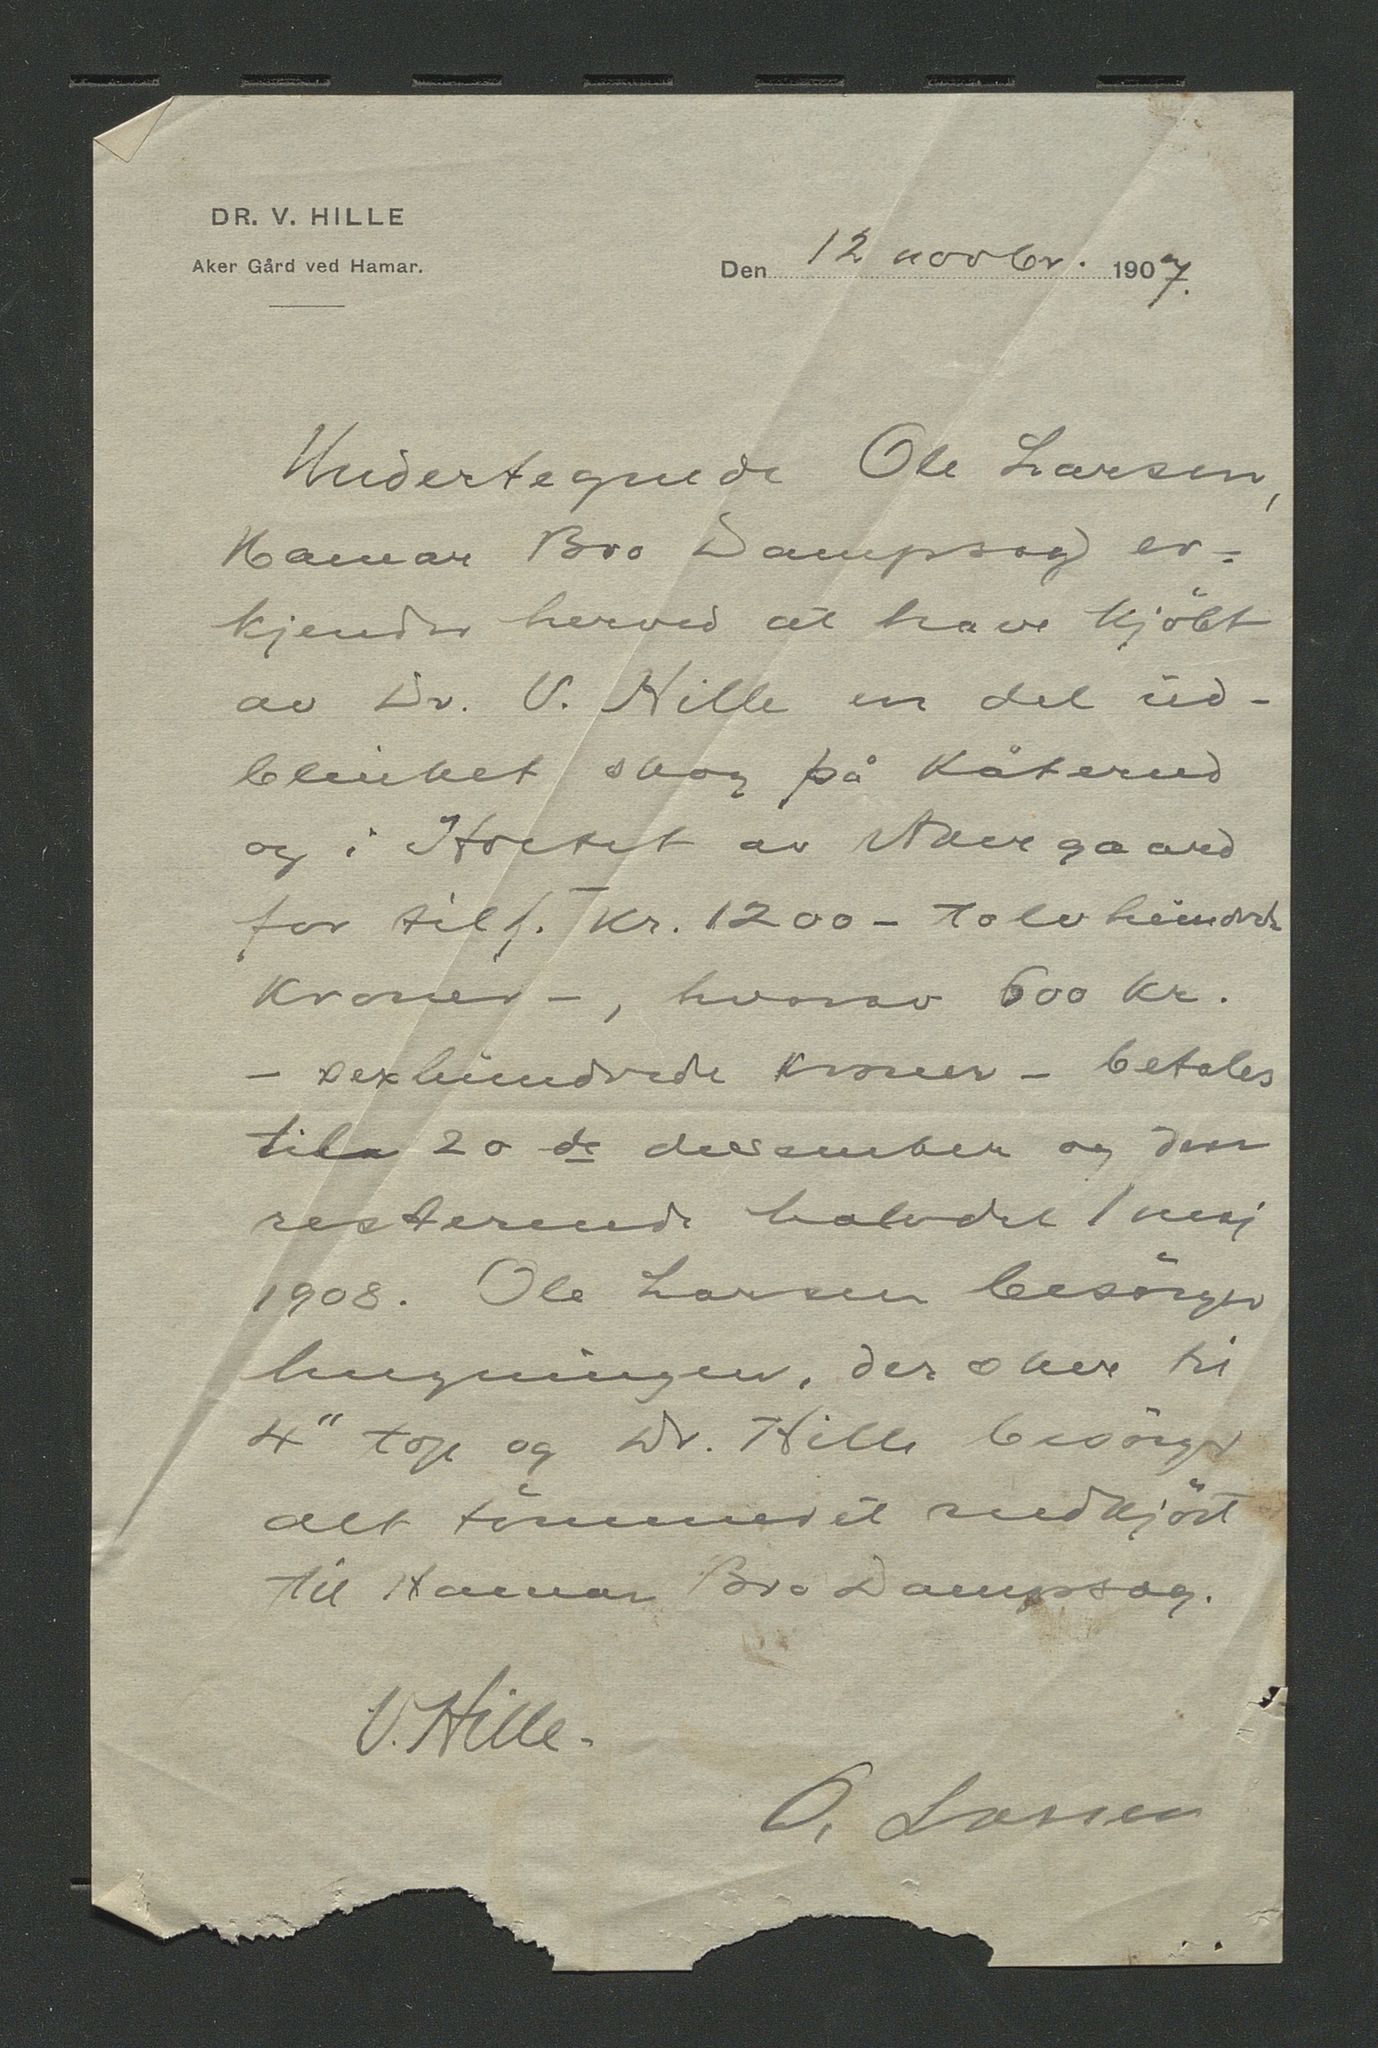 DR. V. HILLE
Aker Gård ved Hamar.
Den 12 novbr. 1907.
Undertegnede Ole Larsen,
Hamar Bro Dampsag er=
kjender herved at have kjöbt
av Dr. V. Hille en del ud-
blinket skog på Kåterud
og i av Akergaard
for tils. Kr. 1200 - tolvhundrede
Kroner -, hvorav 600 kr.
- sexhundrede kroner - betales
20 de desember og den
resterende halvdel 1 maj
1908. Ole Larsen besörger
hugningen, der sker til
4" top og Dr. Hille besörger
alt tömmeret nedkjört
til Hamar Bro Dampsag.
V. Hille.
O. Larsen